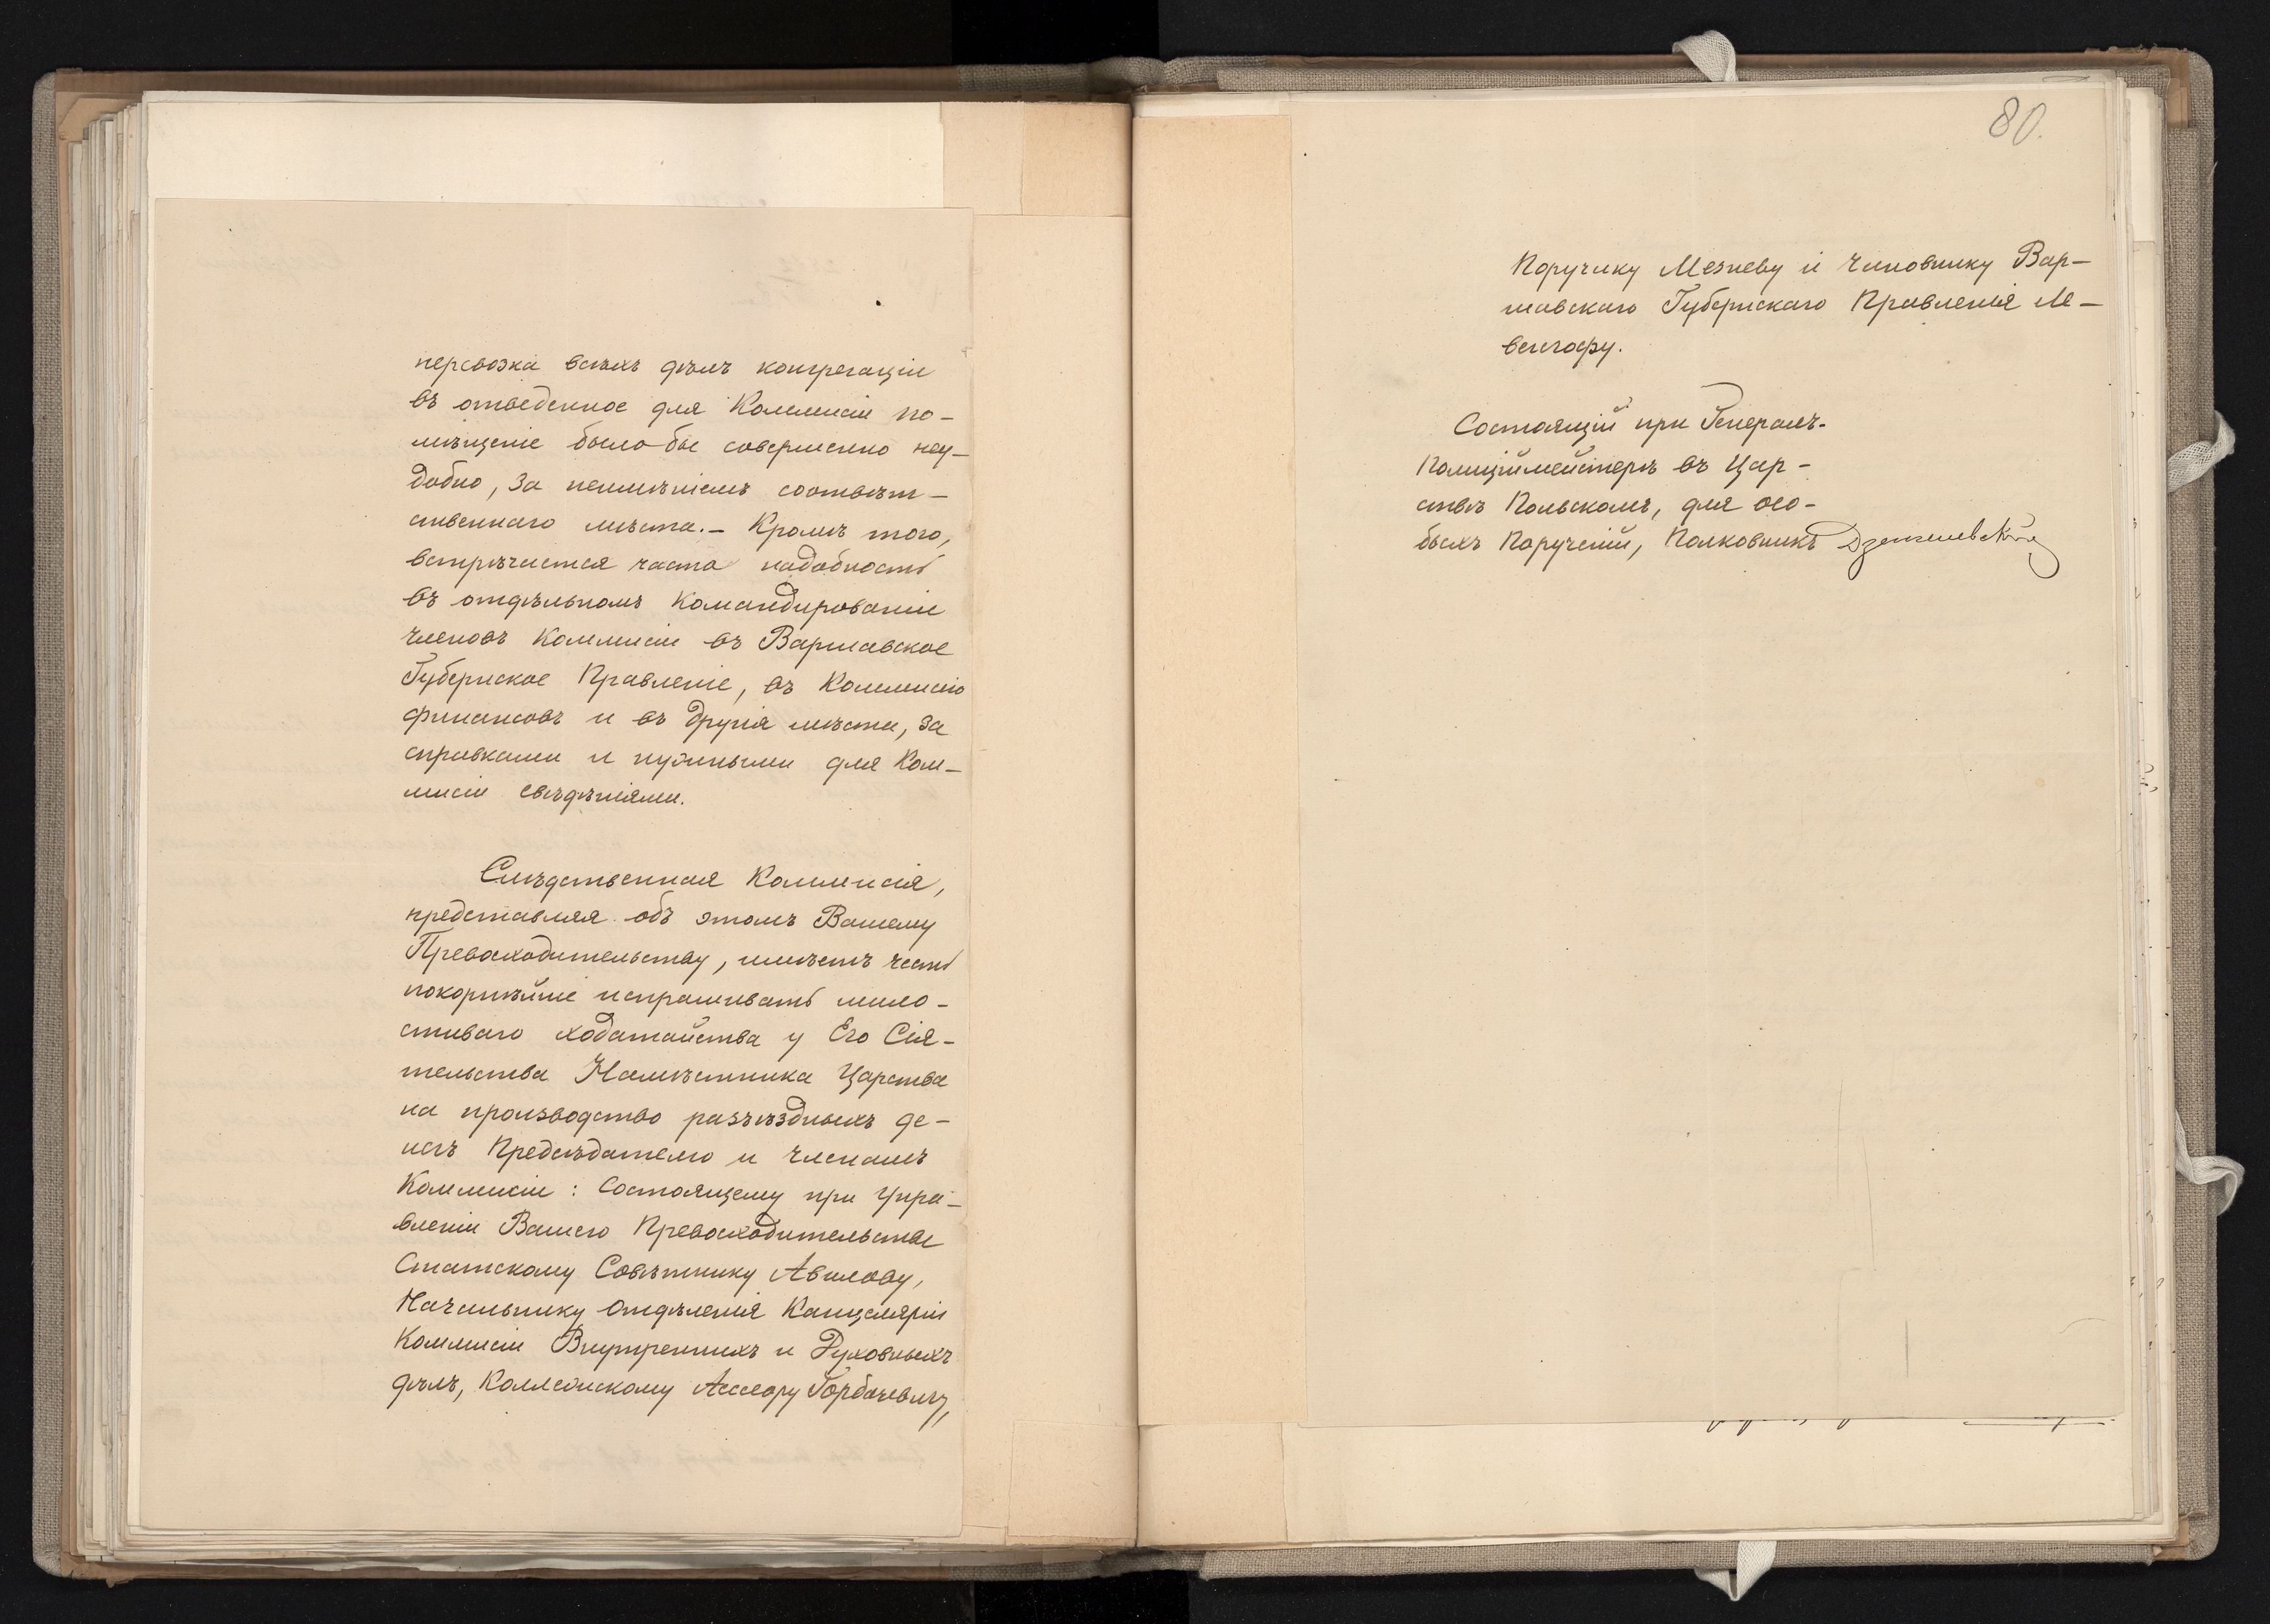 перевозка всѣхъ дѣлъ конгрегаціи
въ отведенное для Коммисіи по-
мѣщеніе было бы совершенно неу-
добно, за неимѣніемъ соотвѣт-
ственнаго мѣста.- Кромѣ того,
встрѣчается часто надобность
въ отдѣльномъ командированіи
членовъ Коммисіи въ Варшавское
Губернское Правленіе, въ Коммисію
финансовъ и въ другія мѣста, за
справками и нужными для Ком-
мисіи свѣдѣніями.
Слѣдственная Коммисія,
представляя объ этомъ Вашему
Превосходительству, имѣетъ честь
покорнѣйше испрашивать мило-
стиваго ходатайства у Его Сія-
тельства Намѣстника Царства
на производство разъѣздныхъ де-
негъ Предсѣдателю и членамъ
Коммисіи: Состоящему при Упра-
вленіи Вашего Превосходительства
Статскому Совѣтнику Авилову,
Начальнику Отдѣленія Канцеляріи
Коммисіи Внутреннихъ и Духовныхъ
дѣлъ, Коллежскому Ассесору Горбачевичу,
80.
Поручику Мезневу и чиновнику Вар-
шавскаго Губернскаго Правленія Ме-
венгофу.
Состоящій при Генералъ-
Полиціймейстерѣ въ Цар-
ствѣ Польскомъ, для осо-
быхъ порученій, Полковникъ